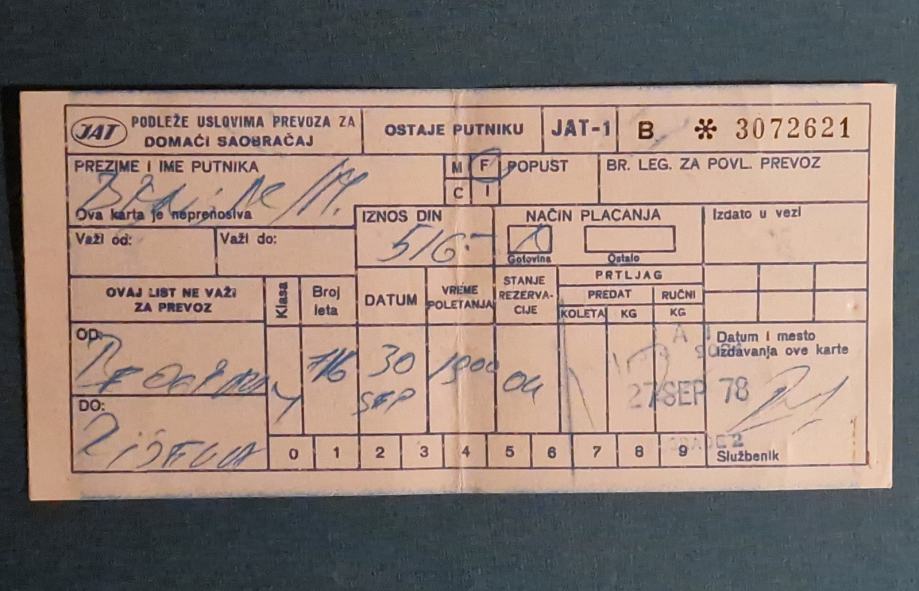 JAT PODLEŽE USLOVIMA PREVOZA ZA
DOMAĆI SAOBRAĆAJ
OSTAJE PUTNIKU
JAT-1
B * 3072621
PREZIME I IME PUTNIKA
M F
C I
POPUST
BR. LEG. ZA POVL. PREVOZ
Ova karta je neprenosiva
IZNOS DIN
516.-
NAČIN PLAĆANJA
Gotovina Ostalo
Izdato u vezi
Važi od: Važi do:
OVAJ LIST NE VAŽI
ZA PREVOZ
Klasa
Broj
leta
DATUM
VREME
POLETANJA
STANJE
REZERVA-
CIJE
PRTLJAG
PREDAT RUČNI
KOLETA KG KG
OD:
Y
716
30
SEP
1900
Datum i mesto
izdavanja ove karte
27 SEP 78
DO:
0 1 2 3 4 5 6 7 8 9
Službenik